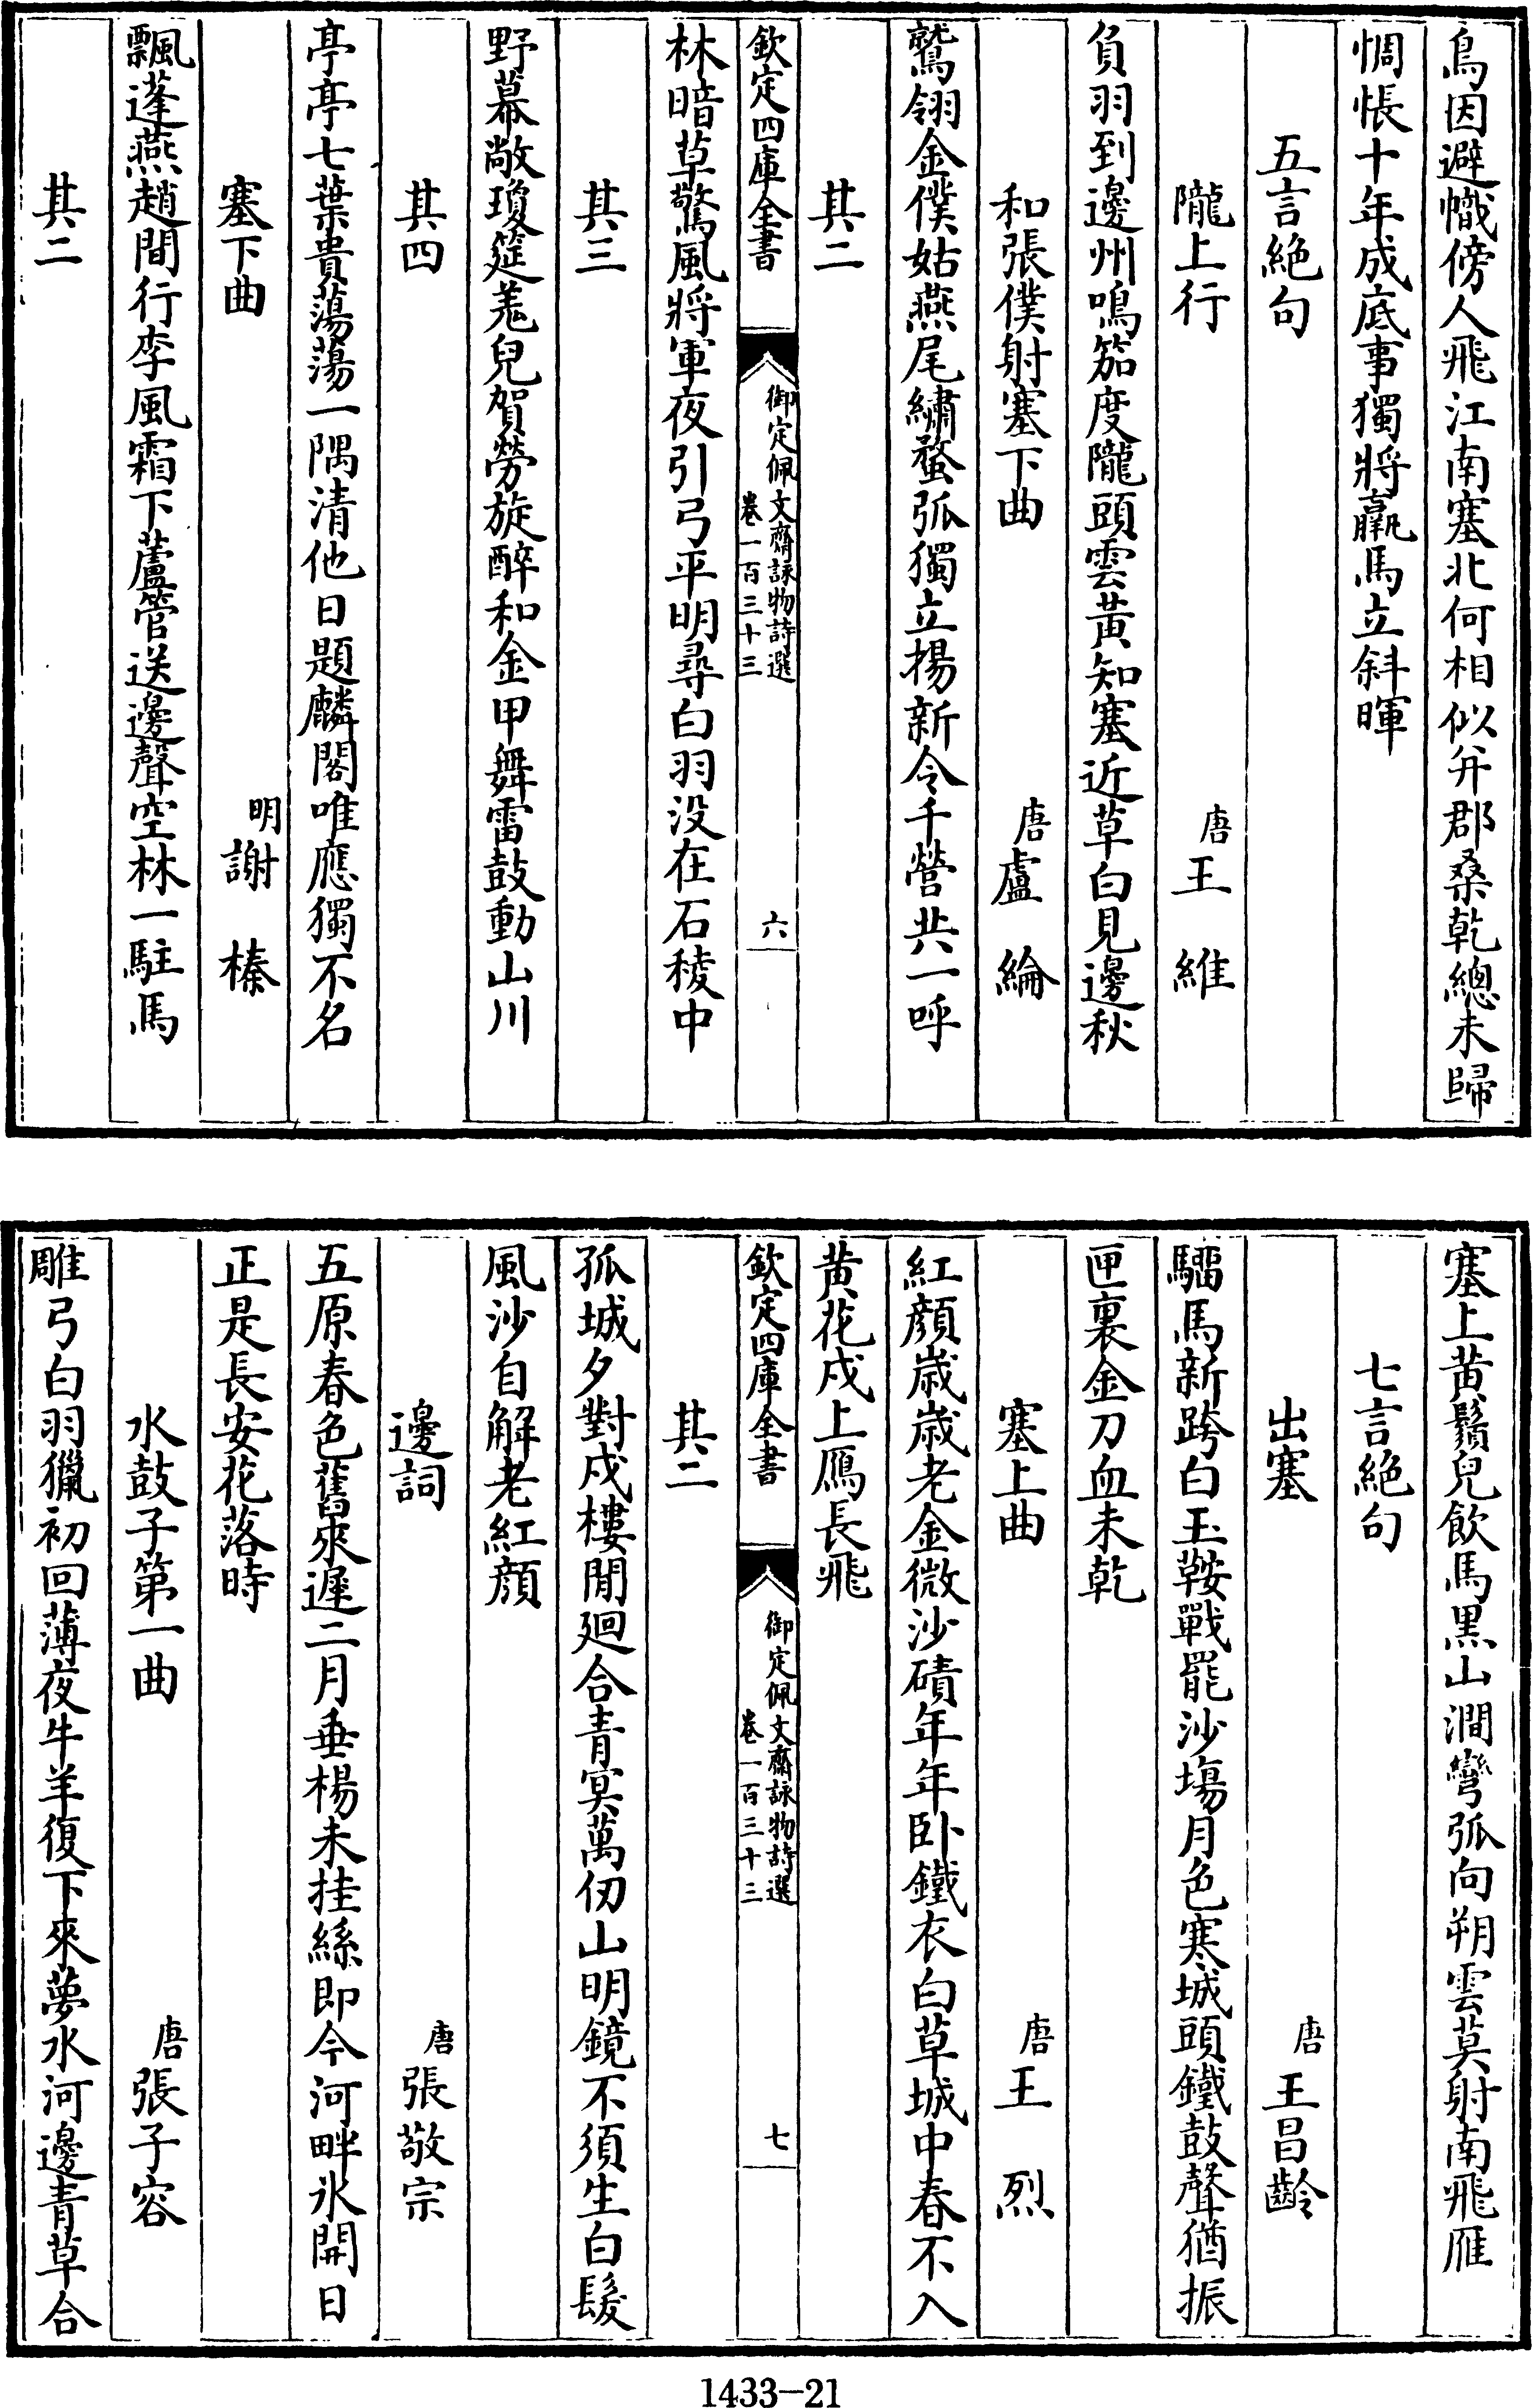 鳥因避幟傍人飛江南塞北何相似并郡桑乾總未歸
惆悵十年成底事獨將羸馬立斜暉
五言絶句
隴上行　唐王維
負羽到邊州鳴笳度隴頭雲黄知塞近草白見邊秋
和張僕射塞下曲　唐盧綸
鷲翎金僕姑燕尾繡蝥弧獨立揚新令千營共一呼
其二
欽定四庫全書　御定佩文齋詠物詩選　卷一百三十三　六
林暗草驚風將軍夜引弓平明尋白羽没在石稜中
其三
野幕敞瓊筵羌兒賀勞旋醉和金甲舞雷鼓動山川
其四
亭亭七葉貴蕩蕩一隅清他日題麟閣唯應獨不名
塞下曲　明謝榛
飄蓬燕趙間行李風霜下蘆管送邊聲空林一駐馬
其二
塞上黄鬚兒飲馬黑山澗彎弧向朔雲莫射南飛雁
七言絶句
出塞　唐王昌齡
騮馬新跨白玉鞍戰罷沙塲月色寒城頭鐵鼓聲猶振
匣裏金刀血未乾
塞上曲　唐王烈
紅顔歲歲老金微沙磧年年卧鐵衣白草城中春不入
黄花戍上鴈長飛
欽定四庫全書　御定佩文齋詠物詩選　卷一百三十三　七
其二
孤城夕對戍樓閒廻合青冥萬仞山明鏡不須生白髮
風沙自解老紅顔
邊詞　唐張敬宗
五原春色舊來遲二月垂楊未挂絲即今河畔氷開日
正是長安花落時
水鼓子第一曲　唐張子容
雕弓白羽獵初回薄夜牛羊復下來夢水河邊青草合
1433-21